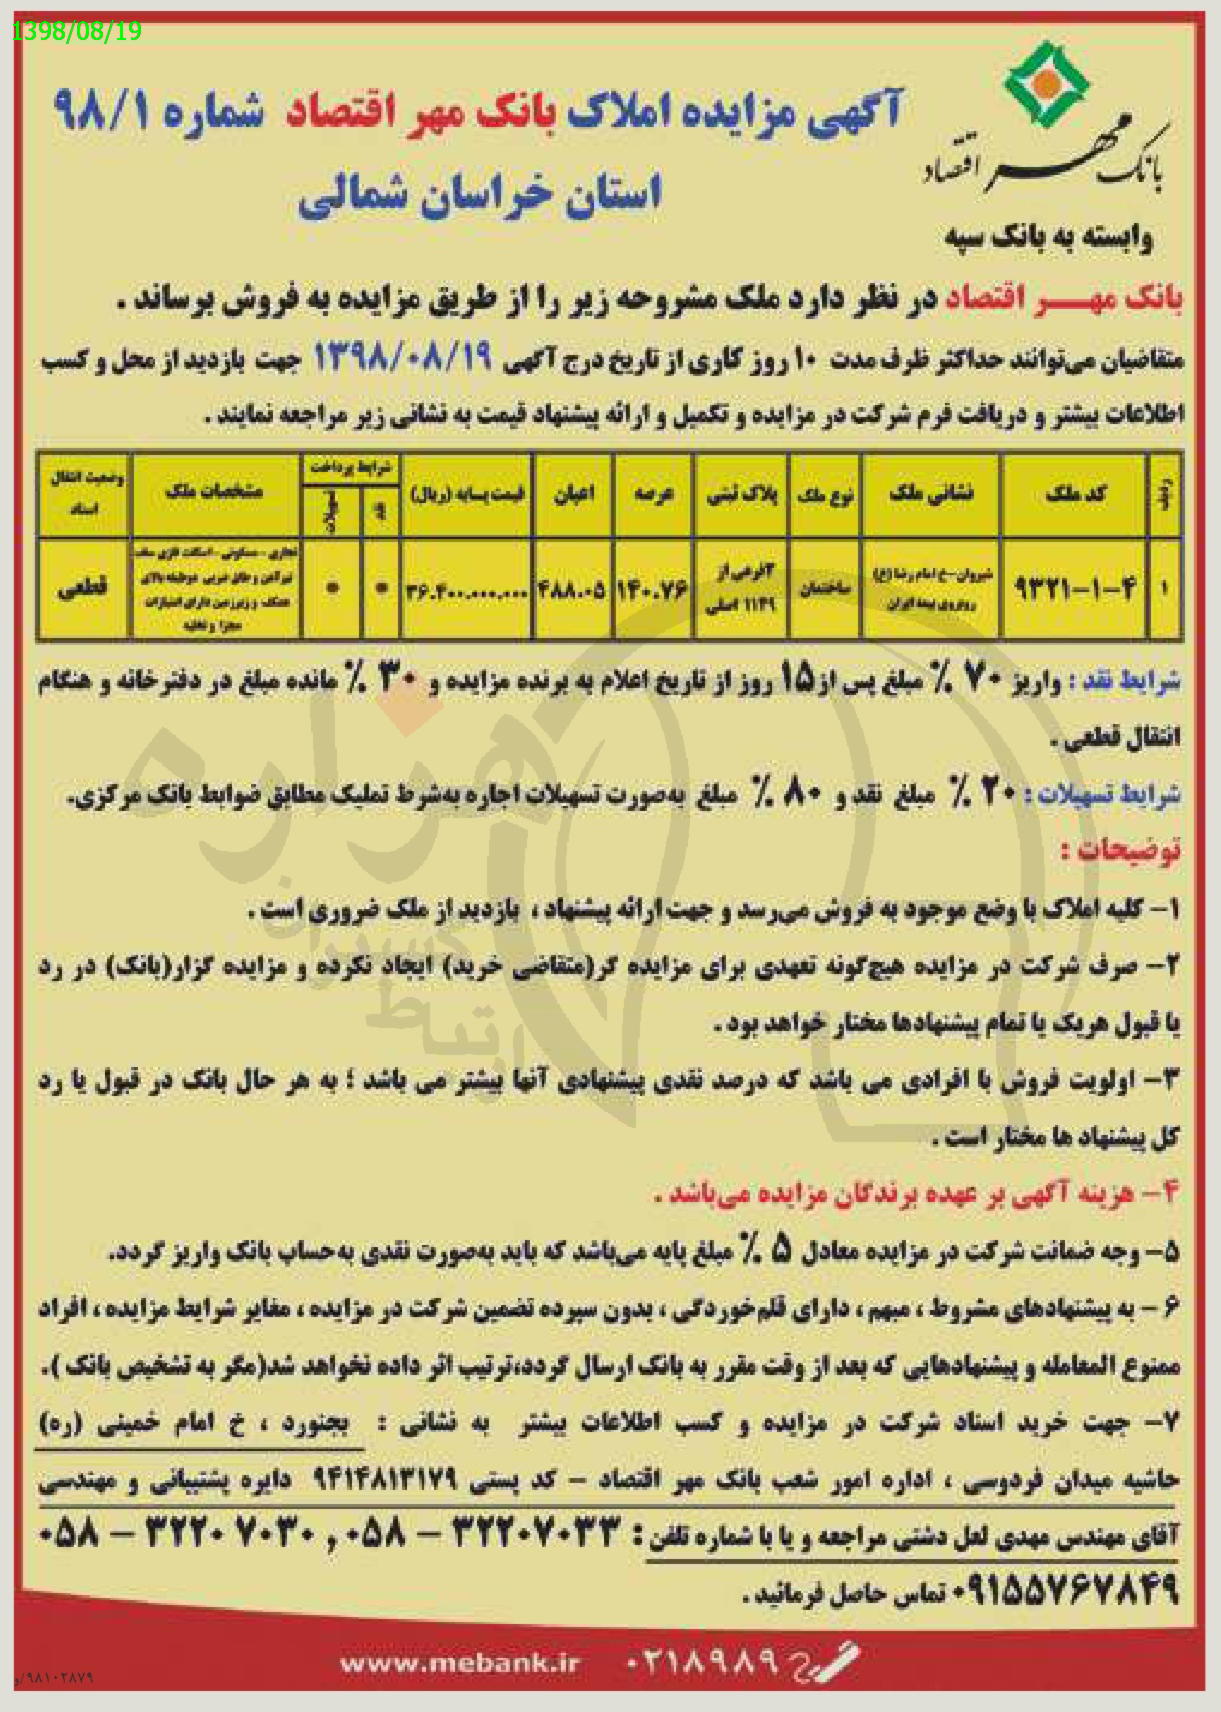 1398/08/19
بانک مهر اقتصاد
وابسته به بانک سپه
آگهی مزایده املاک بانک مهر اقتصاد شماره ۹۸/۱
استان خراسان شمالی
بانک مهـــر اقتصاد در نظر دارد ملک مشروحه زیر را از طریق مزایده به فروش برساند .
متقاضیان می‌توانند حداکثر ظرف مدت ۱۰ روز کاری از تاریخ درج آگهی ۱۳۹۸/۰۸/۱۹ جهت بازدید از محل و کسب
اطلاعات بیشتر و دریافت فرم شرکت در مزایده و تکمیل و ارائه پیشنهاد قیمت به نشانی زیر مراجعه نمایند .
ردیف | کد ملک | نشانی ملک | نوع ملک | پلاک ثبتی | عرصه | اعیان | قیمت پایه (ریال) | شرایط پرداخت | نقد | تسهیلات | مشخصات ملک | وضعیت انتقال اسناد
۱ | ۹۳۲۱-۱-۴ | شیروان-خ امام رضا (ع) روبروی بیمه ایران | ساختمان | ۳فرعی از ۱۱۴۹ اصلی | ۱۴۰.۷۶ | ۴۸۸.۰۵ | ۳۶.۴۰۰.۰۰۰.۰۰۰ | * | * | تجاری - مسکونی - اسکلت فلزی سقف تیرآهن و طاق ضربی دوطبقه بالای همکف و زیرزمین دارای امتیازات مجزا و تخلیه | قطعی
شرایط نقد : واریز ۷۰ ٪ مبلغ پس از ۱۵ روز از تاریخ اعلام به برنده مزایده و ۳۰ ٪ مانده مبلغ در دفترخانه و هنگام
انتقال قطعی .
شرایط تسهیلات : ۲۰ ٪ مبلغ نقد و ۸۰ ٪ مبلغ به‌صورت تسهیلات اجاره به‌شرط تملیک مطابق ضوابط بانک مرکزی.
توضیحات :
۱- کلیه املاک با وضع موجود به فروش می‌رسد و جهت ارائه پیشنهاد ، بازدید از ملک ضروری است .
۲- صرف شرکت در مزایده هیچ‌گونه تعهدی برای مزایده گر(متقاضی خرید) ایجاد نکرده و مزایده گزار(بانک) در رد
یا قبول هریک یا تمام پیشنهادها مختار خواهد بود .
۳- اولویت فروش با افرادی می باشد که درصد نقدی پیشنهادی آنها بیشتر می باشد ؛ به هر حال بانک در قبول یا رد
کل پیشنهاد ها مختار است .
۴- هزینه آگهی بر عهده برندگان مزایده می‌باشد .
۵- وجه ضمانت شرکت در مزایده معادل ۵ ٪ مبلغ پایه می‌باشد که باید به‌صورت نقدی به‌حساب بانک واریز گردد.
۶ - به پیشنهادهای مشروط ، مبهم ، دارای قلم‌خوردگی ، بدون سپرده تضمین شرکت در مزایده ، مغایر شرایط مزایده ، افراد
ممنوع المعامله و پیشنهادهایی که بعد از وقت مقرر به بانک ارسال گردد،ترتیب اثر داده نخواهد شد(مگر به تشخیص بانک ).
۷- جهت خرید اسناد شرکت در مزایده و کسب اطلاعات بیشتر به نشانی : بجنورد ، خ امام خمینی (ره)
حاشیه میدان فردوسی ، اداره امور شعب بانک مهر اقتصاد - کد پستی ۹۴۱۴۸۱۳۱۷۹ دایره پشتیبانی و مهندسی
آقای مهندس مهدی لعل دشتی مراجعه و یا با شماره تلفن : ۳۲۲۰۷۰۳۳ - ۰۵۸ , ۳۲۲۰۷۰۳۰ - ۰۵۸
۰۹۱۵۵۷۶۷۸۴۹ تماس حاصل فرمائید .
www.mebank.ir ۰۲۱۸۹۸۹
۹۸۱۰۲۸۷۹/و
هزاره